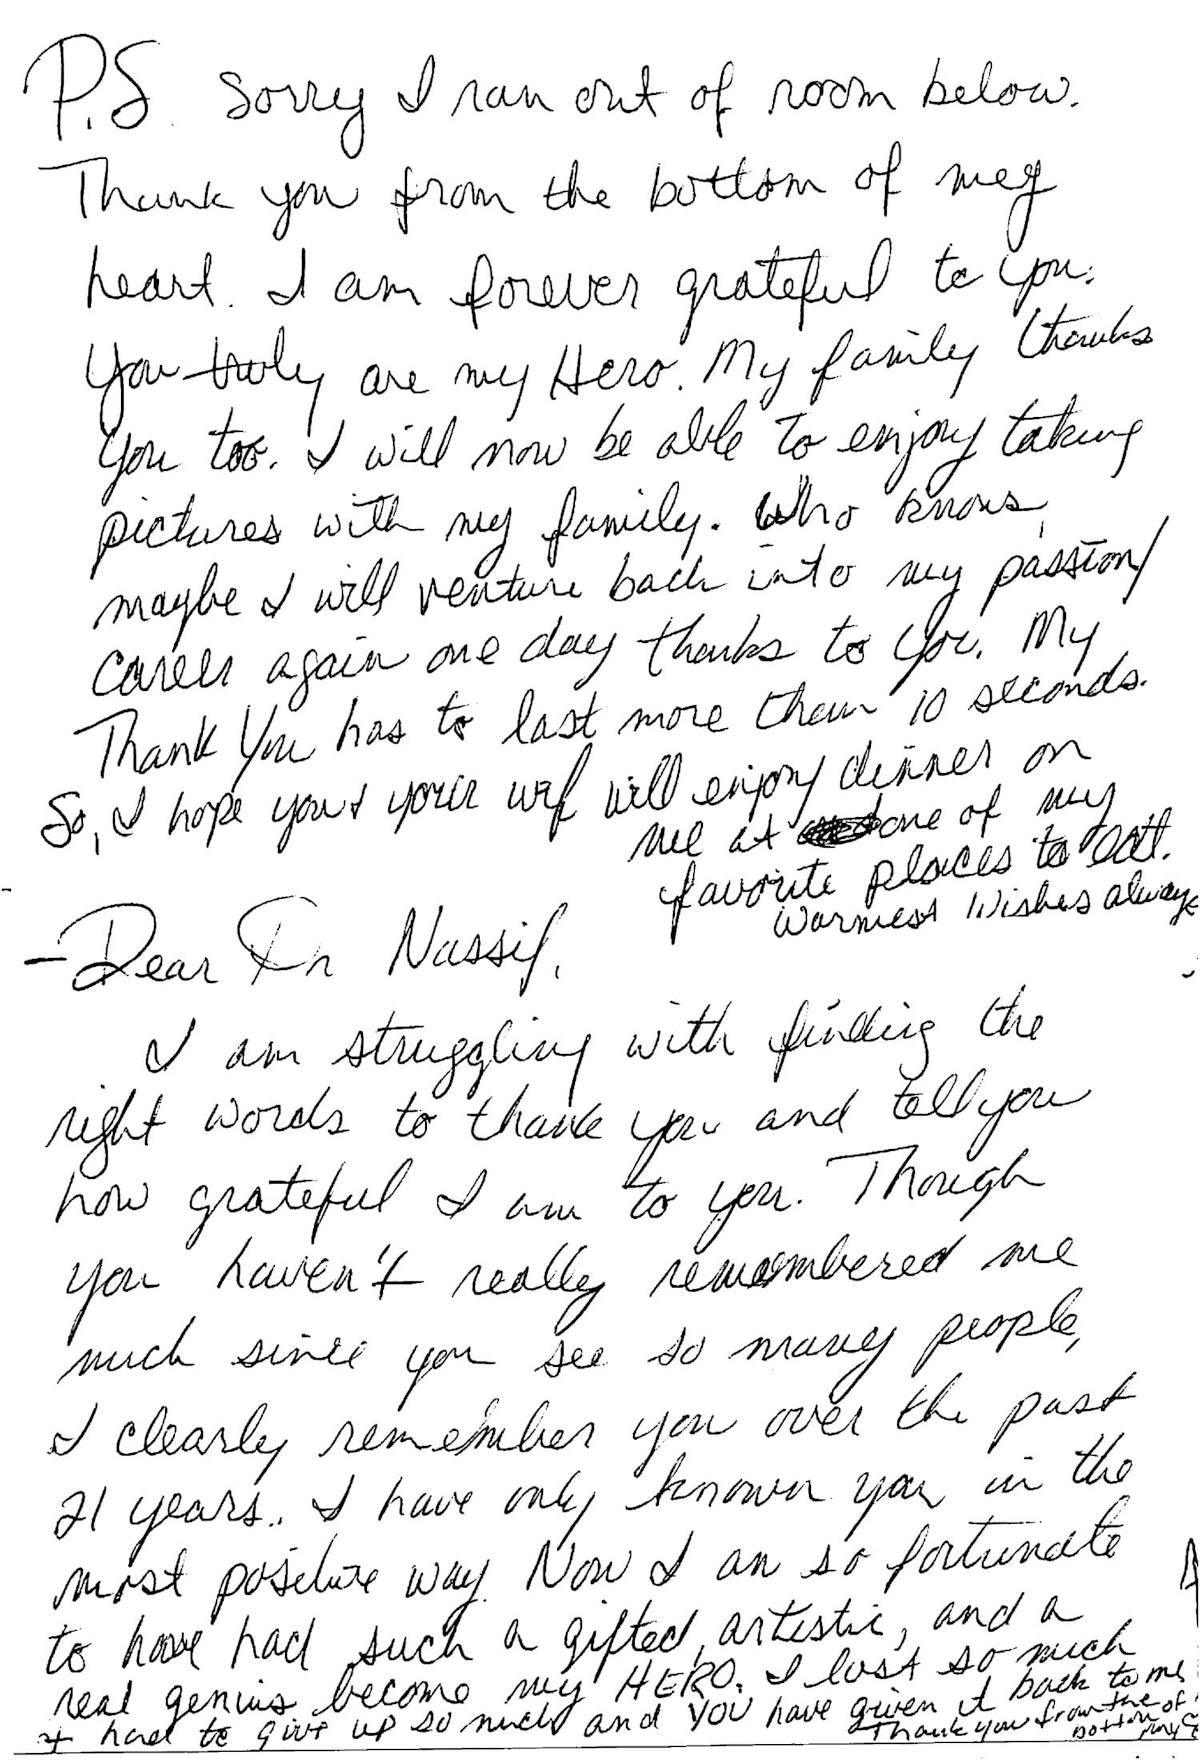 P.S. Sorry I ran out of room below.
Thank you from the bottom of my
heart. I am forever grateful to you.
You truly are my Hero. My family thanks
you too. I will now be able to enjoy taking
pictures with my family. Who knows,
maybe I will venture back into my passion/
career again one day thanks to you. My
Thank You has to last more than 10 seconds.
So, I hope you & your wif will enjoy dinner on
me at one of my
favorite places to eat.
Warmest Wishes always
- Dear Dr Nassif,
I am struggling with finding the
right words to thank you and tell you
how grateful I am to you. Though
you haven't really remembered me
much since you see so many people,
I clearly remember you over the past
21 years. I have only known you in the
most positive way. Now I am so fortunate
to have had such a gifted, artistic, and a
real genius become my HERO. I lost so much
& had to give up so much and YOU have given it back to me
Thank you from the
bottom of
my